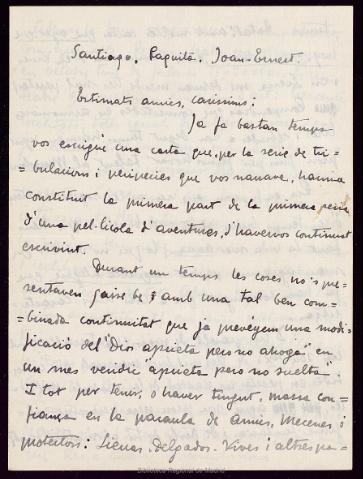 Santiago, Paquita, Joan-Ernest.
Estimats amics, caríssims:
Ja fa bastan temps
vos escrigué una carta que, per la serie de tri-
=bulacions i peripecies que vos narrava, hauria
constituit la primera part de la primera
d'una pel·lícola d'aventures, d'havervos continuat
escrivint.
Durant un temps les coses no's pre-
sentaven gaire bé i amb una tal ben com-
=binada continuitat que ja prevèyem una modi-
ficació del "Dios aprieta pero no ahoga" en
un mes verídic "aprieta pero no suelta".
I tot per tenir, o haver tingut, massa con-
fiança en la paraula de amics, Mecenes i
protectors: Sienas, Delgados, Vives i altres pa-
Biblioteca Regional de Madrid